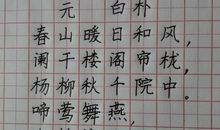 元 白朴
春山暖日和风，
阑干楼阁帘栊，
杨柳秋千院中。
啼莺舞燕，